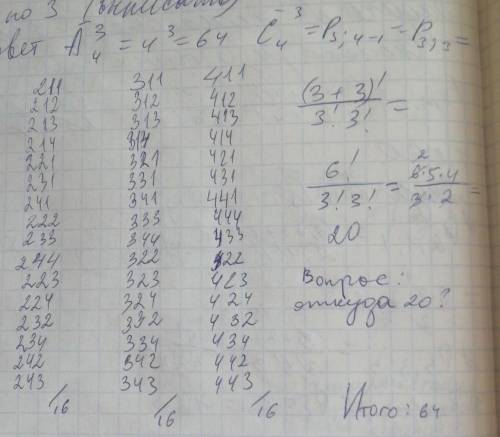 по 3 (выписать)
вет A̅³₄ = 4³ = 64 C̅³₄ = P₃;₄₋₁ = P₃;₃ =
211 311 411
212 312 412
213 313 413
214 314 414
221 321 421
231 331 431
241 341 441
222 333 444
233 344 433
244 322 422
223 323 423
224 324 424
232 332 432
234 334 434
242 342 442
243 343 443
/16 /16 /16
(3+3)!/3!3! =
6!/3!3! = 6·5·4/3·2 =
20
Вопрос:
откуда 20?
Итого: 64